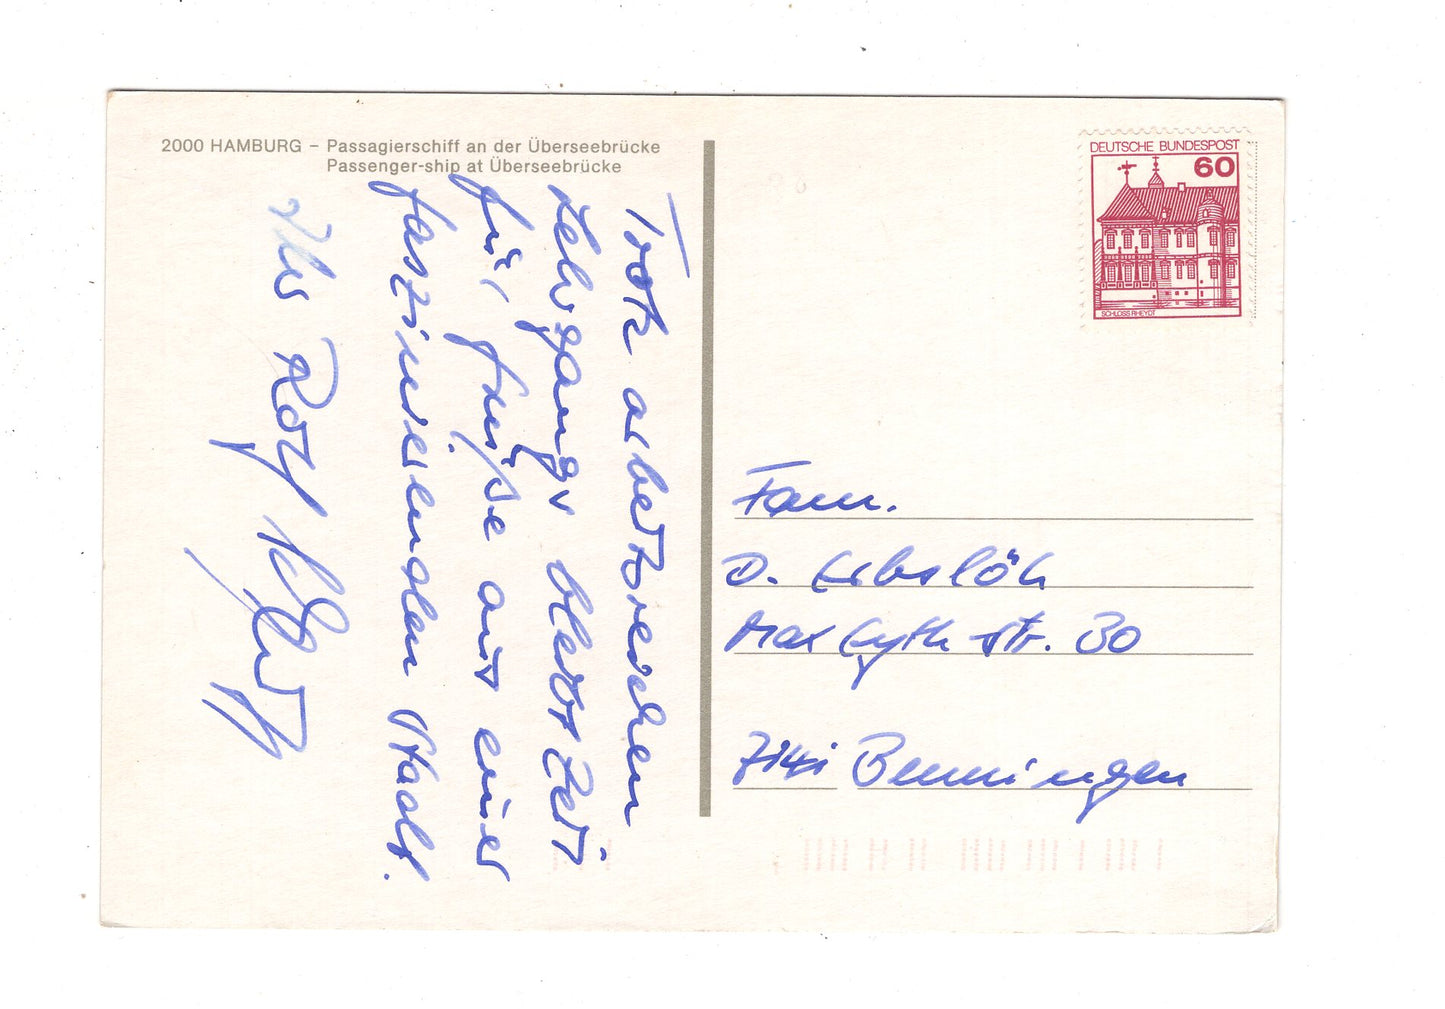 2000 HAMBURG – Passagierschiff an der Überseebrücke
Passenger-ship at Überseebrücke
Trotz arbeitsreichem
Lehrgangs bleibt Zeit
für Grüße aus einer
faszinierenden Stadt.
Ihr Rolf
DEUTSCHE BUNDESPOST
60
SCHLOSS RHEYDT
Fam.
D. Erbslöh
Max Eyth Str. 30
7141 Benningen